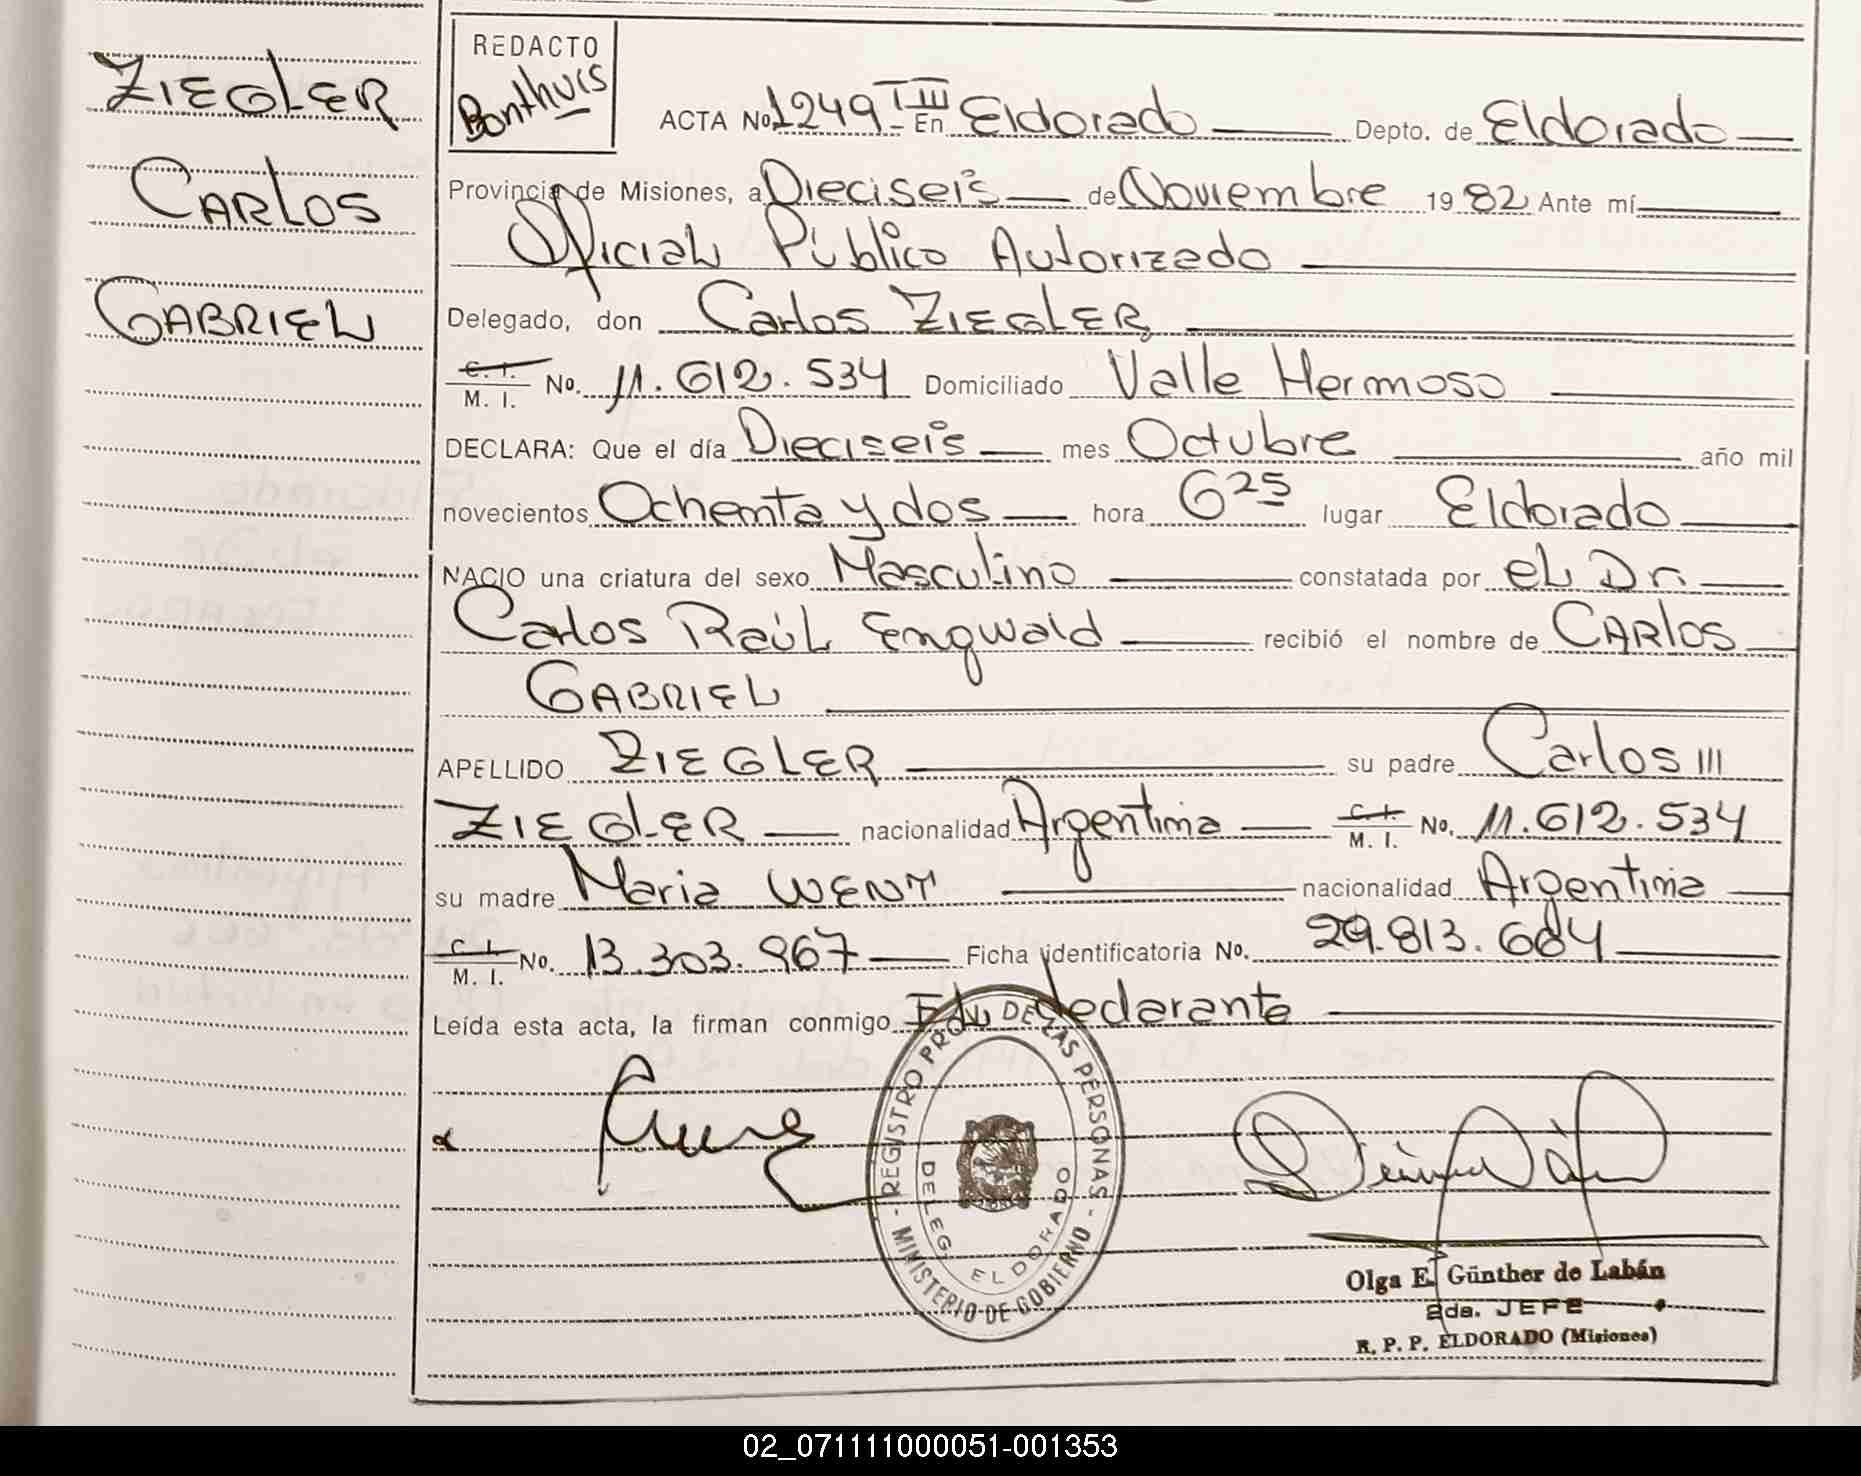 ZIEGLER
CARLOS
GABRIEL
REDACTO
Bonthuis
ACTA No 1249 T III En Eldorado Depto. de Eldorado
Provincia de Misiones, a Dieciseis de Noviembre 1982 Ante mí
Oficial Público Autorizado
Delegado, don Carlos ZIEGLER
C. I.
M. I. No. 11.612.534 Domiciliado Valle Hermoso
DECLARA: Que el día Dieciseis mes Octubre año mil
novecientos Ochenta y dos hora 6 25 lugar Eldorado
NACIO una criatura del sexo Masculino constatada por el Dr.
Carlos Raúl Engwald recibió el nombre de CARLOS
GABRIEL
APELLIDO ZIEGLER su padre Carlos III
ZIEGLER nacionalidad Argentina C. I. M. I. No. 11.612.534
su madre Maria WENT nacionalidad Argentina
C. I.
M. I. No. 13.303.967 Ficha identificatoria No. 29.813.684
Leída esta acta, la firman conmigo El declarante
REGISTRO PROV. DE LAS PERSONAS - MINISTERIO DE GOBIERNO -
DELEG. ELDORADO
Olga E. Günther de Labán
2da. JEFE
R. P. P. ELDORADO (Misiones)
02_071111000051-001353